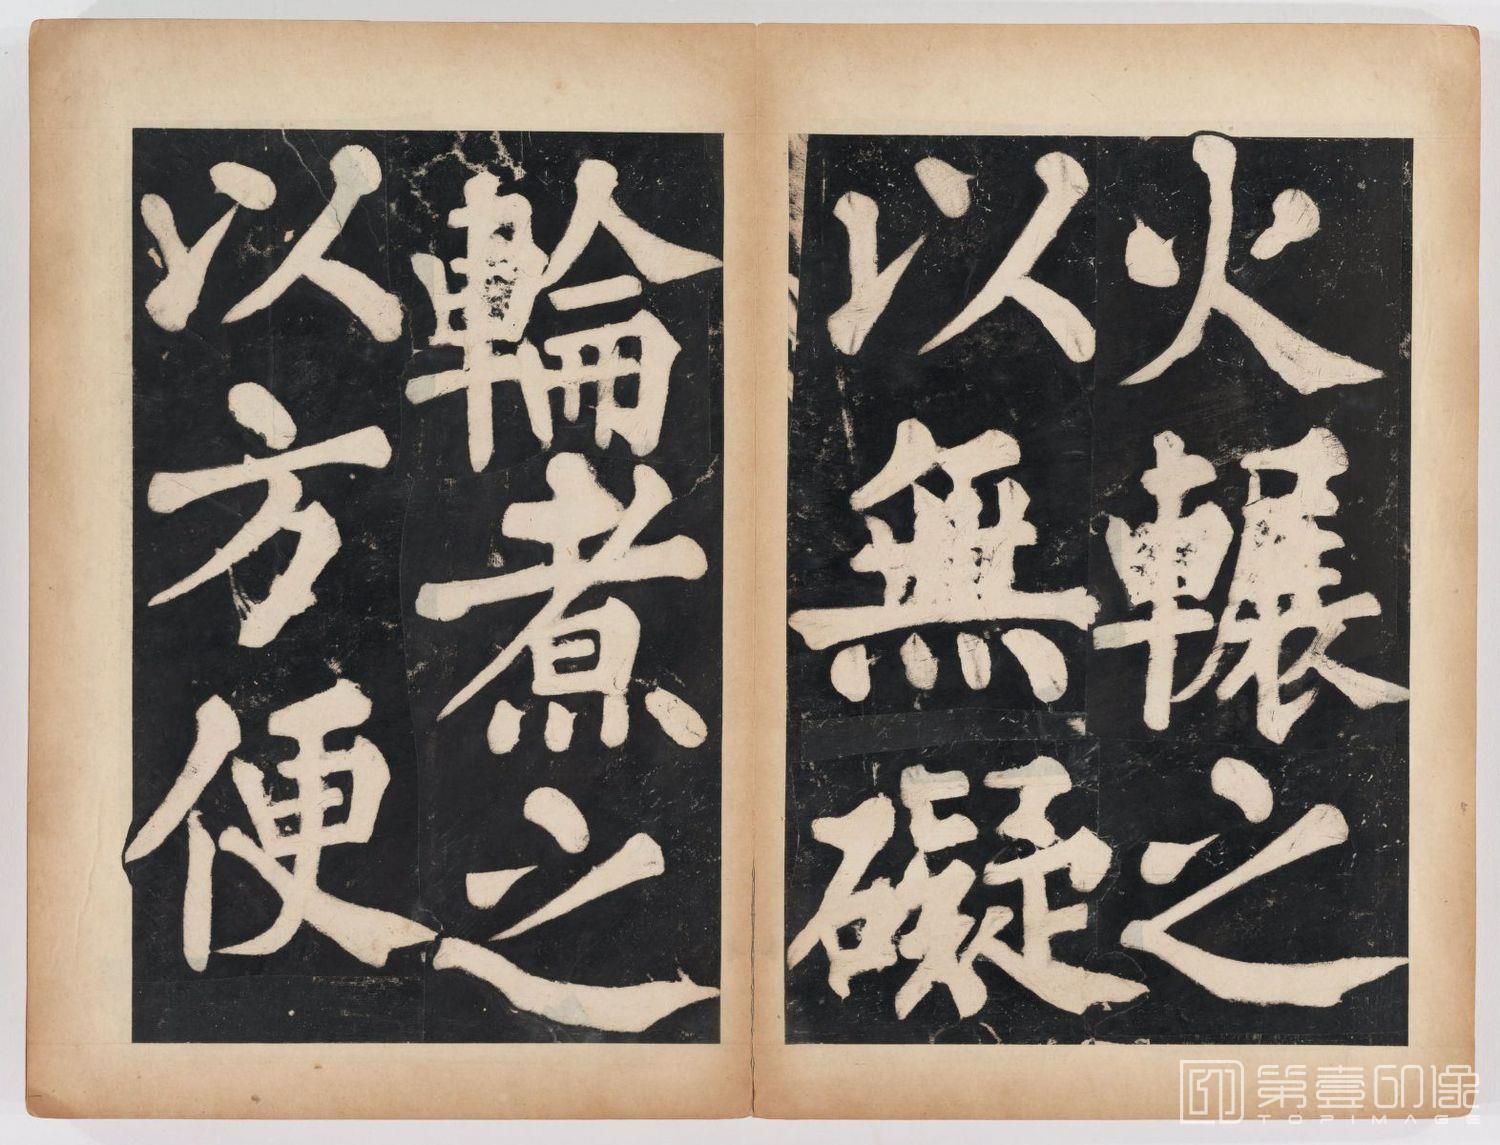 火輾之
以無礙
輪煮之
以方便
第壹印像
TOPIMAGE